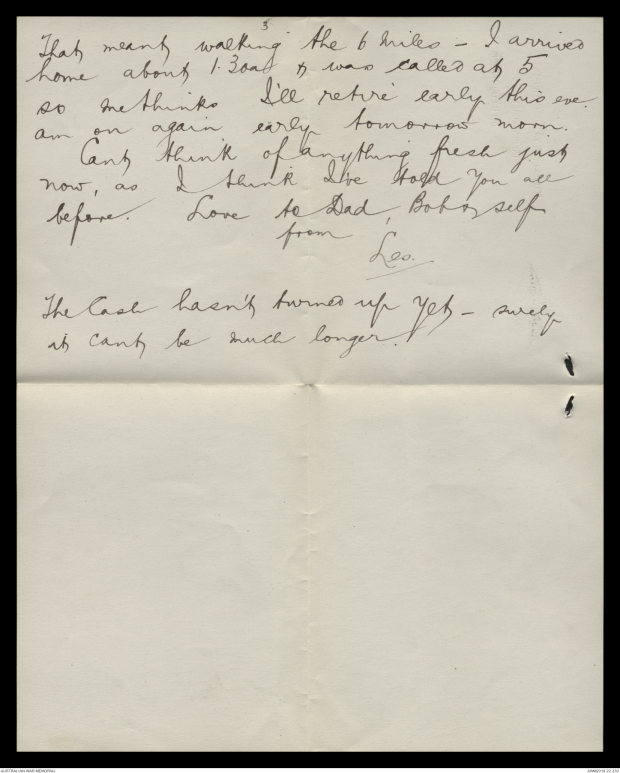 3
That meant walking the 6 miles – I arrived
home about 1.30am & was called at 5
so methinks I'll retire early this eve.
am on again early tomorrow morn.
Cant think of anything fresh just
now, as I think I've told you all
before. Love to Dad, Bob & self
from
Les.
The Cash hasn't turned up yet – surely
it cant be much longer.
AUSTRALIAN WAR MEMORIAL